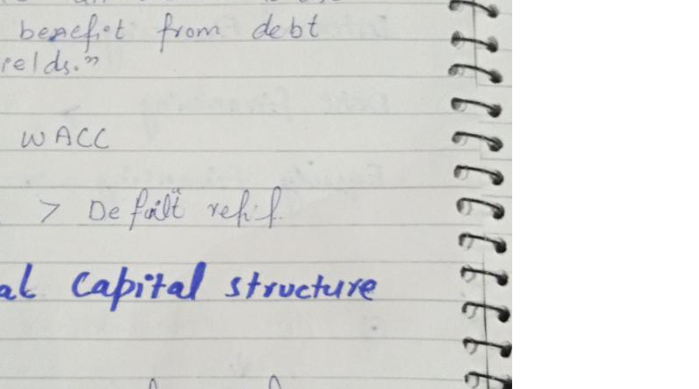 benefit from debt
ields."
WACC
> Default
al Capital structure